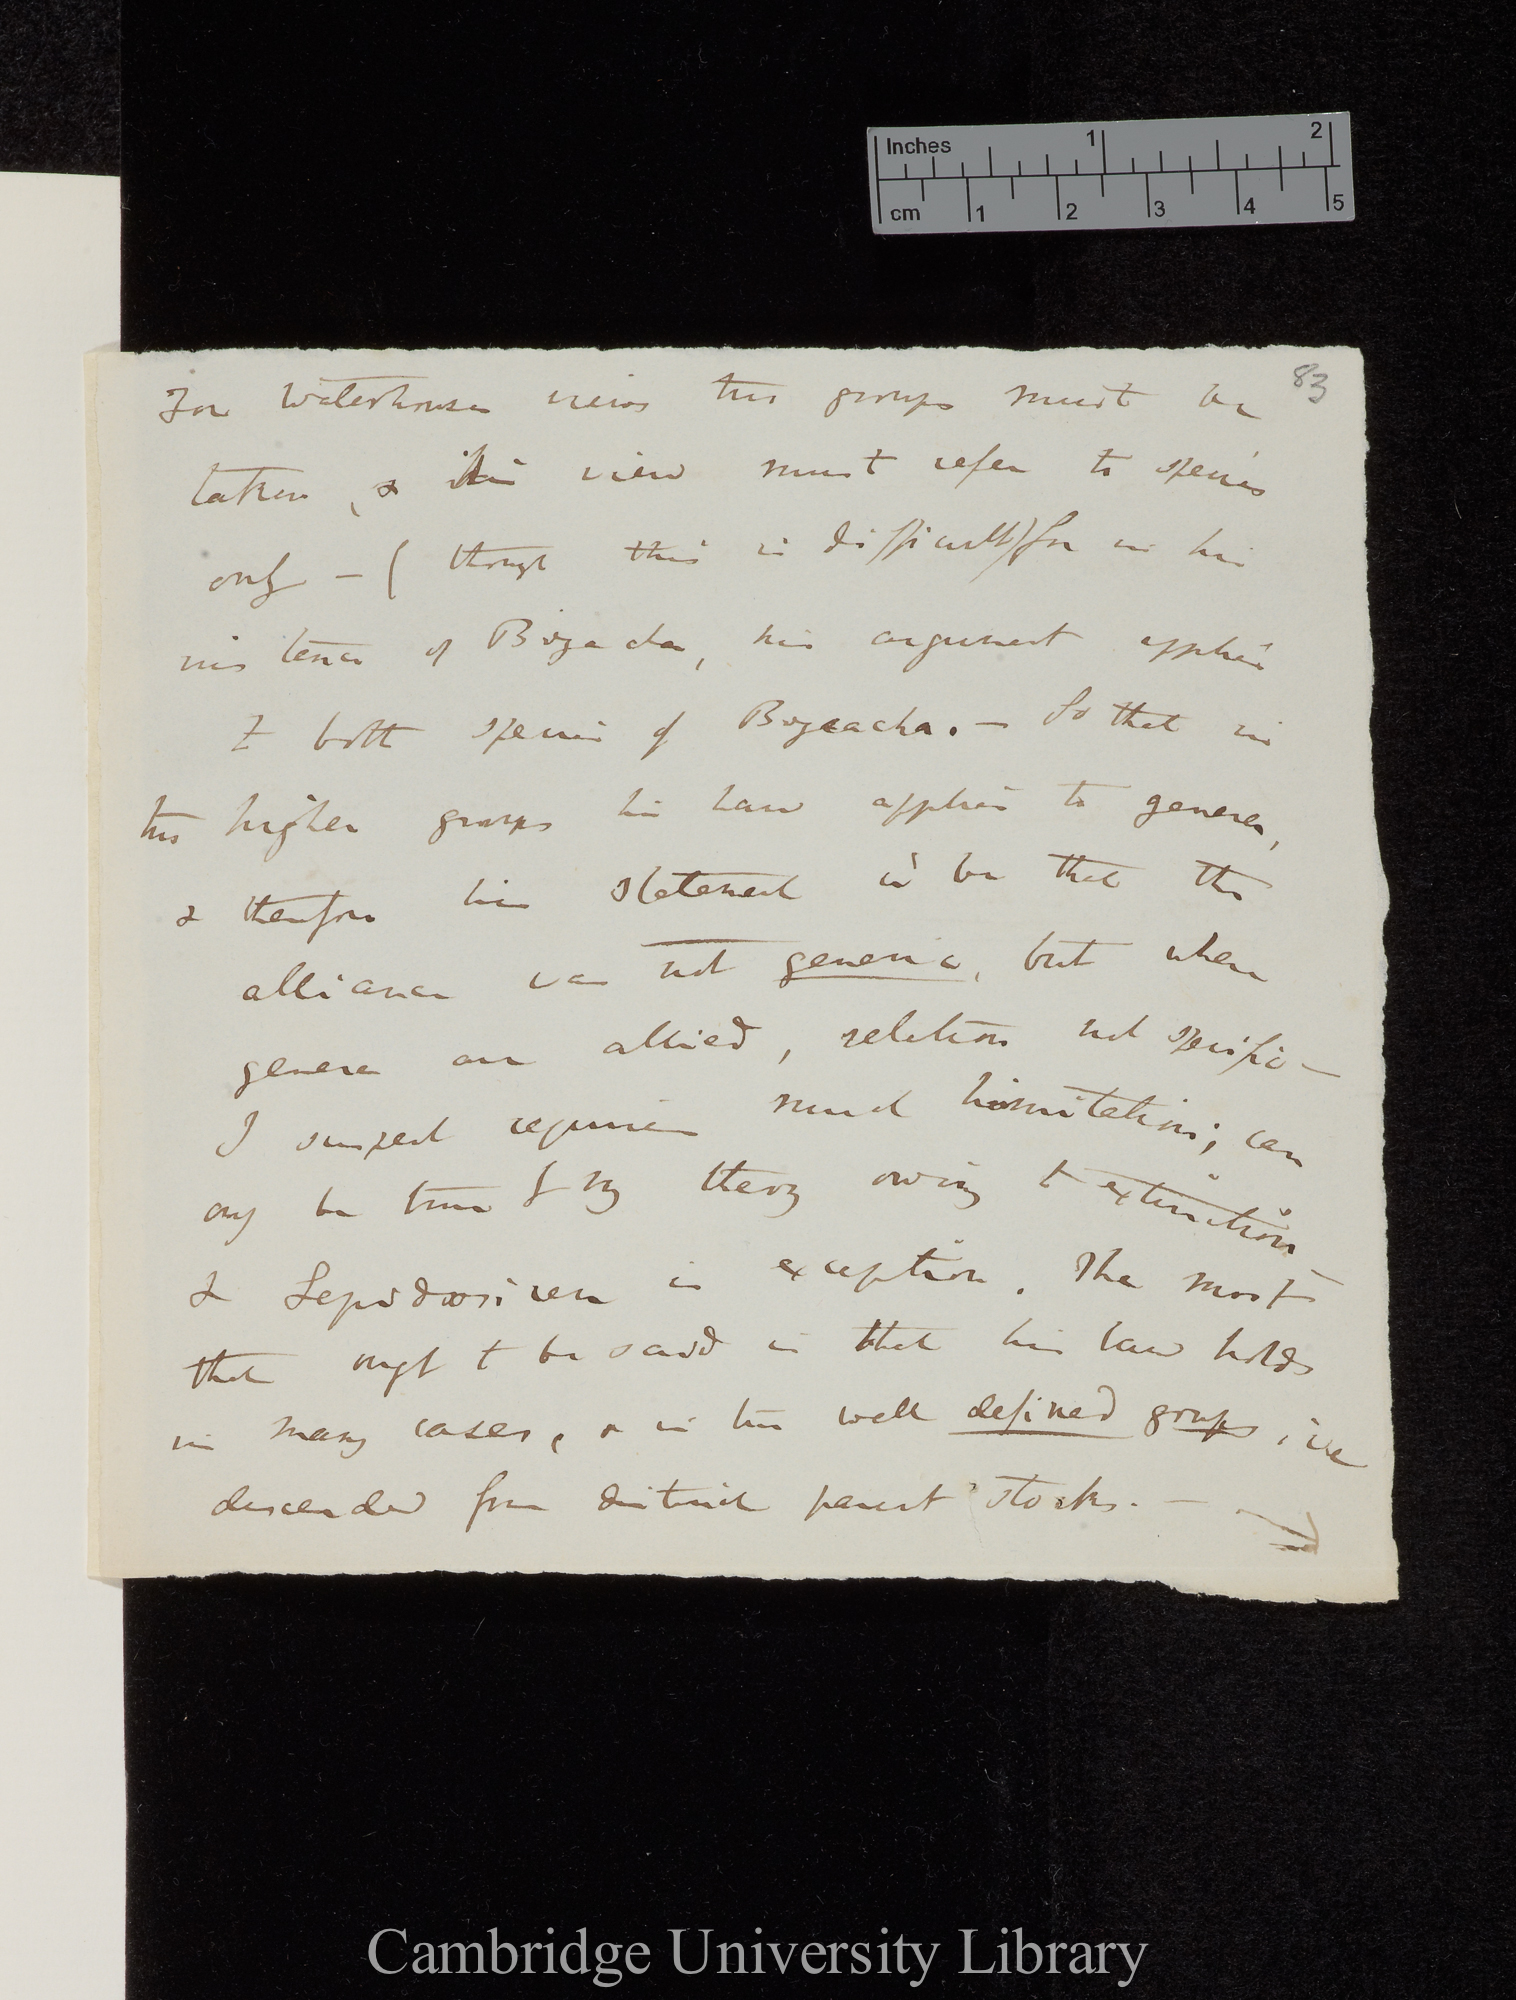 Inches 1 2
cm 1 2 3 4 5
83
For Waterhouses views two groups must be
taken, & his view must refer to species
only — (though this is difficult) for in his
instance of Bizcacha, his argument applies
to both species of Bizcacha. — So that in
the higher groups his law applies to genera,
& therefore his statement wd be that the
alliance was not generic, but when
genera are allied, relation not specific —
I suspect requires much limitation; can
only be true by my theory owing to extinction
& Lepidosiren is exception. The most
that ought to be said is that his law holds
in many cases, & in two well defined groups, ie
descended from distinct parent stocks. —
Cambridge University Library